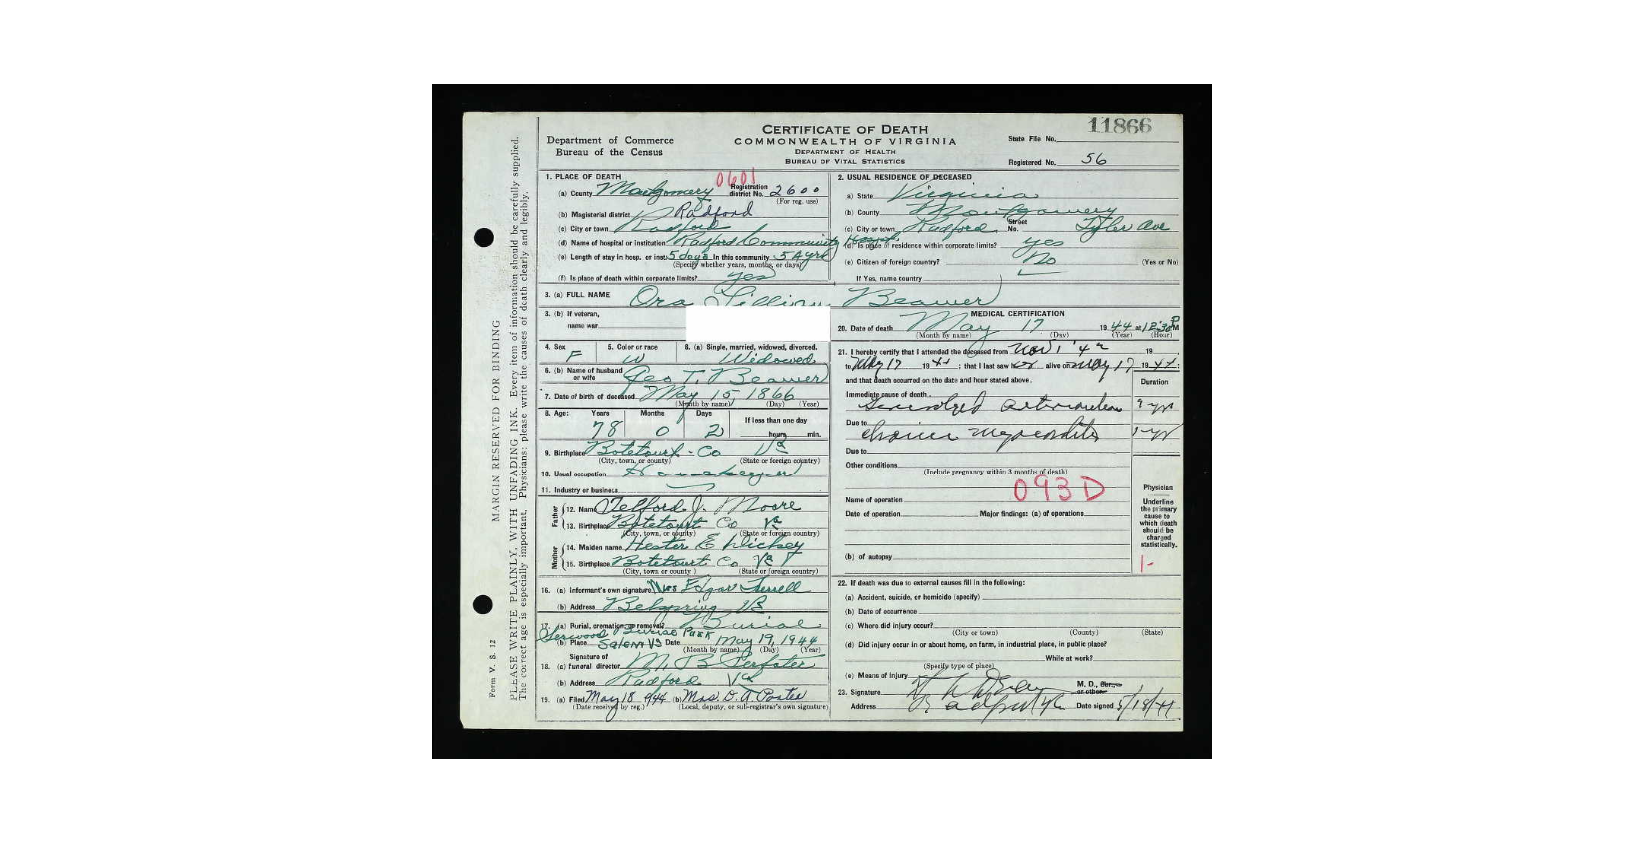 11866
CERTIFICATE OF DEATH
COMMONWEALTH OF VIRGINIA
DEPARTMENT OF HEALTH
BUREAU OF VITAL STATISTICS
Department of Commerce
Bureau of the Census
State File No.
Registered No. 56
1. PLACE OF DEATH
0601
(a) County Montgomery Registration district No. 2600
(For reg. use)
(b) Magisterial district Radford
(c) City or town Radford
(d) Name of hospital or institution Radford Community Hospital
(e) Length of stay in hosp. or inst. 5 days In this community 54 yrs
(Specify whether years, months, or days)
(f) Is place of death within corporate limits? yes
2. USUAL RESIDENCE OF DECEASED
a) State Virginia
(b) County Montgomery
(c) City or town Radford Street No. Tyler Ave
(d) Is place of residence within corporate limits? yes
(e) Citizen of foreign country? No (Yes or No)
If Yes, name country
3. (a) FULL NAME Ora Lillian Beamer
3. (b) If veteran,
name war
4. Sex F 5. Color or race W 6. (a) Single, married, widowed, divorced. Widowed
6. (b) Name of husband or wife Geo T. Beamer
7. Date of birth of deceased May 15 1866
(Month by name) (Day) (Year)
8. Age: Years Months Days If less than one day
78 0 2 hours min.
9. Birthplace Botetourt - Co Va
(City, town, or county) (State or foreign country)
10. Usual occupation Housekeeper
11. Industry or business
Father
12. Name Telford J. Moore
13. Birthplace Botetourt Co Va
(City, town, or county) (State or foreign country)
Mother
14. Maiden name Hester E Dickey
15. Birthplace Botetourt Co Va
(City, town, or county) (State or foreign country)
16. (a) Informant's own signature Mrs Edgar
(b) Address Belspring Va
17. (a) Burial, cremation or removal? Burial
Sherwood Burial Park
(b) Place Salem Va Date May 19, 1944
(Month by name) (Day) (Year)
Signature of
18. (a) funeral director M. B.
(b) Address Radford Va
19. (a) Filed May 18 1944 (b) Mrs. D. A. Porter
(Date received by reg.) (Local, deputy, or sub-registrar's own signature)
MEDICAL CERTIFICATION
20. Date of death May 17 1944 at 12:30 P M
(Month by name) (Day) (Year) (Hour)
21. I hereby certify that I attended the deceased from Nov 1 '42 19
to May 17 1944; that I last saw alive on May 17 1944;
and that death occurred on the date and hour stated above. Duration
Immediate cause of death
Due to
Due to
Other conditions
(Include pregnancy within 3 months of death)
093D
Name of operation
Date of operation Major findings: (a) of operations
(b) of autopsy
Physician
Underline the primary cause to which death should be charged statistically.
22. If death was due to external causes fill in the following:
(a) Accident, suicide, or homicide (specify)
(b) Date of occurrence
(c) Where did injury occur?
(City or town) (County) (State)
(d) Did injury occur in or about home, on farm, in industrial place, in public place?
While at work?
(Specify type of place)
(e) Means of injury
23. Signature M. D.,
Address Radford Va Date signed 5/18/44
MARGIN RESERVED FOR BINDING
PLEASE WRITE PLAINLY, WITH UNFADING INK. Every item of information should be carefully supplied.
The correct age is especially important. Physicians: please write the causes of death clearly and legibly.
Form V. S. 12